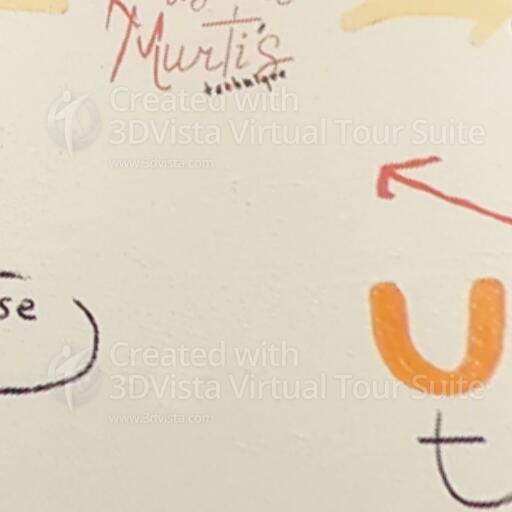 Murti's
technique
Created with
3DVista Virtual Tour Suite
www.3dvista.com
se
U
Created with
3DVista Virtual Tour Suite
www.3dvista.com
t